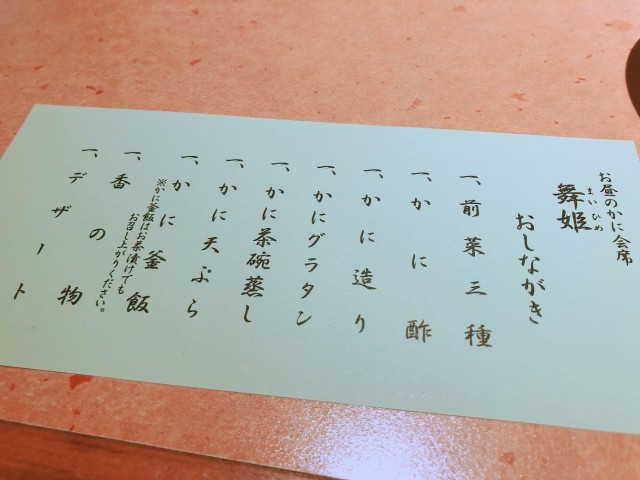 お昼のかに会席
まいひめ
舞姫
おしながき
一、前菜三種
一、かに酢
一、かに造り
一、かにグラタン
一、かに茶碗蒸し
一、かに天ぷら
一、かに釜飯
※かに釜飯はお茶漬けでも
お召し上がりください。
一、香の物
一、デザート